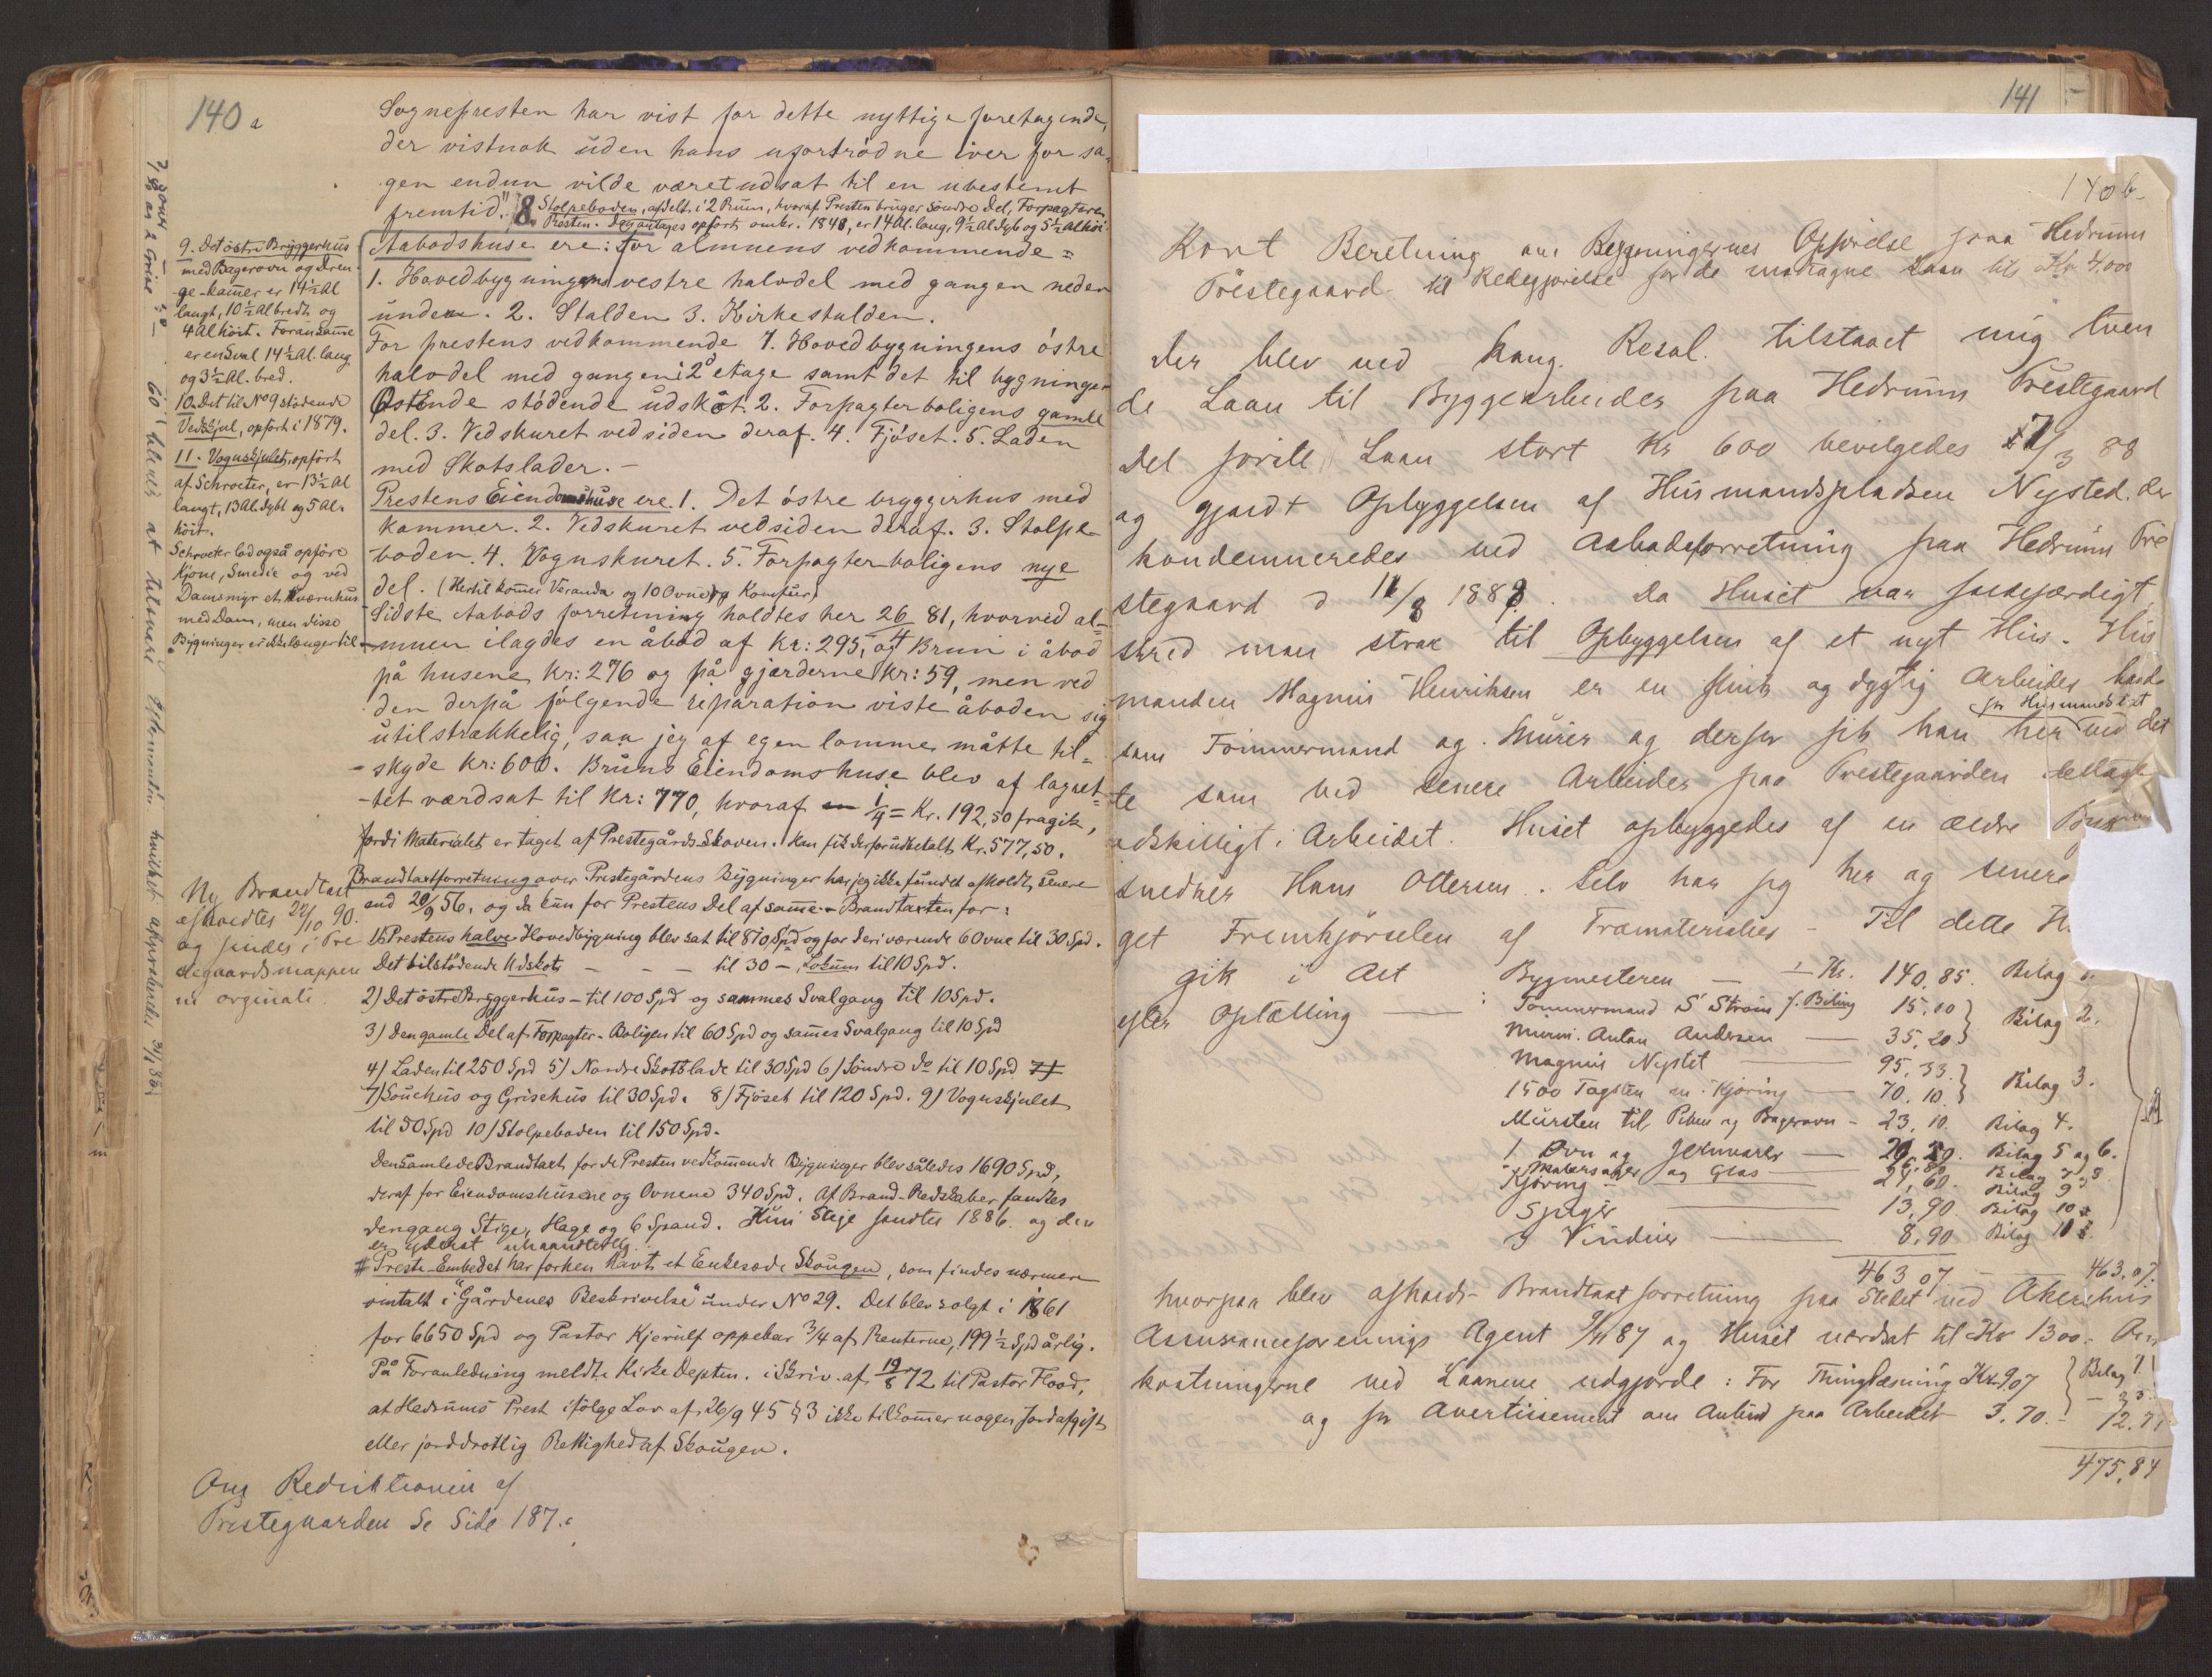 140 a
Sognepresten har vist for dette nyttige foretagende,
der vistnok uden hans ufortrødne iver for sa-
gen endnu vilde været udsat til en ubestemt
fremtid." 8 Stolpeboden, afdelt i 2 Rum, hvoraf Presten bruger søndre Del, Forpagteren
Resten. Den antages opført omkr. 1840, er 14 Al. lang, 9½ Al dyb og 5½ Al høi.
Aabodshuse ere: for almuens vedkommende =
1. Hovedbygningens vestre halvdel med gangen neden
under. 2. Stalden 3. Kirkestalden.
For prestens vedkommende 1. Hovedbygningens østre
halvdel med gangen i 2 etage samt det til bygningen
Østende stødende udskot. 2. Forpagterboligens gamle
del. 3. Vedskuret ved siden deraf. 4. Fjøset. 5. Laden
med Skotslader. -
Prestens Eiendomshuse ere 1. Det østre bryggerhus med
kammer. 2. Vedskuret ved siden deraf. 3. Stolpe-
boden. 4. Vognskuret. 5. Forpagterboligens nye
del. (Hertil kommer Veranda og 10 Ovne og Komfur)
Sidste Aabods forretning holdtes her 26/4 81, hvorved al-
muen ilagdes en åbod af Kr: 295, og Brun i åbod
på husene Kr: 276 og på gjærderne Kr: 59, men ved
den derpå følgende reparation viste åboden sig
utilstrækkelig, saa jeg af egen lomme måtte til-
skyde Kr: 600. Bruns Eiendomshuse blev af lagret-
tet værdsat til Kr: 770, hvoraf ¼ = Kr. 192,50 fragik,
fordi Materialet er taget af Prestegårds-Skoven. Han fik derfor udbetalt Kr. 577,50.
Brandtaxtforretning over Prestegårdens Bygninger har jeg ikke fundet afholdt senere
end 20/9 56, og da kun for Prestens Del af samme. Brandtaxten for:
1) Prestens halve Hovedbygning blev sat til 810 Spd og for deri værende 6 Ovne til 30 Spd.
Det tilstødende Udskot - - - til 30 - Lokum til 10 Spd.
2) Det østre Bryggerhus - til 100 Spd og sammes Svalgang til 10 Spd.
3) Den gamle Del af Forpagter-Boligen til 60 Spd og sammes Svalgang til 10 Spd
4) Laden til 250 Spd 5) Nordre Skotslade til 30 Spd 6) Søndre do til 10 Spd 7)
7) Souehus og Grisehus til 30 Spd. 8) Fjøset til 120 Spd. 9) Vognskjulet
til 50 Spd 10) Stolpeboden til 150 Spd.
Den samlede Brandtaxt for de Presten vedkommende Bygninger blev således 1690 Spd,
deraf for Eiendomshusene og Ovnene 340 Spd. Af Brand-Redskaber fandtes
dengang Stige, Hage og 6 Spand. Kun Stige fandtes 1886. og den
er yderst uhaandterlig.
# Preste-Embedet har forhen havt et Enkesæde Skougen, som findes nærmere
omtalt i "Gårdenes Beskrivelse" under No 29. Det blev solgt i 1861
for 6650 Spd og Pastor Kjerulf oppebar 3/4 af Renterne, 199½ Spd årlig.
På Foranledning meldte Kirke Depten. i Skriv. af 19/8 72 til Pastor Flood,
at Hedrums Prest ifølge Lov af 26/9 45 § 3 ikke tilkommer nogen Jordafgift
eller jorddrotlig Rettighed af Skougen.
Om Reduktionen af
Prestegaarden Se Side 187.
9. Det østre Bryggerhus
med Bagerovn og Dren-
ge-kammer er 14½ Al
langt, 10½ Al bredt og
4 Al høit. Foran samme
er en Sval 14½ Al. lang
og 3½ Al. bred.
10. Det til No 9 stødende
Vedskjul, opført i 1879.
11. Vognskjulet, opført
af Schroeter, er 13½ Al
langt, 13 Al dybt og 5 Al.
høit.
Schroeter lod også opføre
Kjone, Smedie og ved
Damsmyr et Kværnhus
med Dam, men disse
Bygninger er ikke længer til.
Ny Brandtaxt
afholdtes 27/10 90.
og findes i Pre-
stegaardsmappen
in orginali.
141
140 b.
Kort Beretning om Bygningernes Opførelse paa Hedrum
Prestegaard til Redegjørelse for de modtagne Laan til Kr 4000
Der blev ved kong. Resol. tilstaaet mig tven
de Laan til Byggearbeider paa Hedrum Prestegaard
Det første Laan stort Kr 600 bevilgedes 17/3 88
og gjaldt Opbyggelsen af Husmandspladsen Nysted. der
kondemneredes ved Aabodsforretning paa Hedrum Pre
stegaard d 11/8 188. Da Huset var faldefærdigt
skred man strax til Opbyggelsen af et nyt Hus. Hus
manden Magnus Henriksen er en flink og dygtig Arbeider baade
som Tømmermand og Murer og derfor fik han her ved det
for Husmandslivet
te som ved senere Arbeider paa Prestegaarden deltage
adskilligt i Arbeidet. Huset opbyggedes af en ældre Byg
snedker Hans Ottersen. Selv har jeg her og senere
get Fremkjørselen af Træmaterialier - Til dette H
gik i Alt Bygmesteren - Kr. 140,85. Bilag
efter Optælling - : Tømmermand S Strøm f. Biling 15,00 } Bilag 2.
Murm. Anton Andersen - 35,20 }
Magnus Nystet - 95,33 } Bilag 3.
1500 Tagsten m. Kjøring - 70,10 }
Mursten til Piben og Bagerovn - 23,10. Bilag 4.
1 Ovn og Jernvarer - 20. Bilag 5 og 6.
Malersager og Glas - Bilag 7 og 8
Kjøring - 21,60. Bilag 9
Spiger - 13,90. Bilag 10
3 Vinduer - 8,90 Bilag 11
463 07 - - 463,07.
hvorpaa blev afholdt Brandtaxtforretning paa Stedet ved Akershus
Assuranceforenings Agent 87 og Huset værdsat til Kr 1300.-
kostningerne ved Laanene udgjorde: For Thinglæsning Kr. 9,07 } Bilag 1
og for Avertissement om Anbud paa Arbeidet 3.70. -
475,84